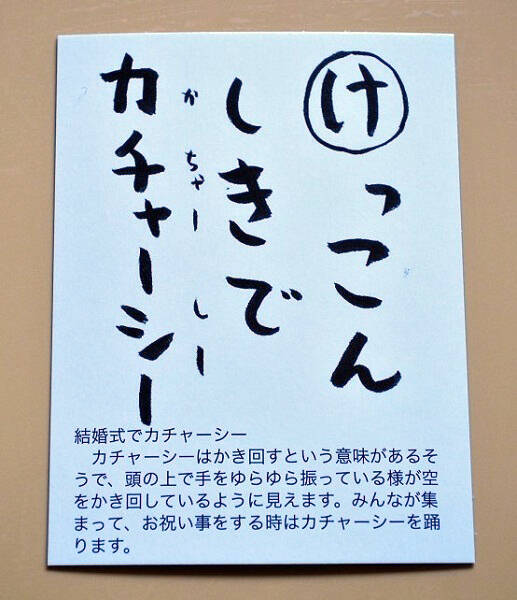 けっこん
しきで
カチャーシー
かちゃーしー
結婚式でカチャーシー
　カチャーシーはかき回すという意味があるそ
うで、頭の上で手をゆらゆら振っている様が空
をかき回しているように見えます。みんなが集
まって、お祝い事をする時はカチャーシーを踊
ります。